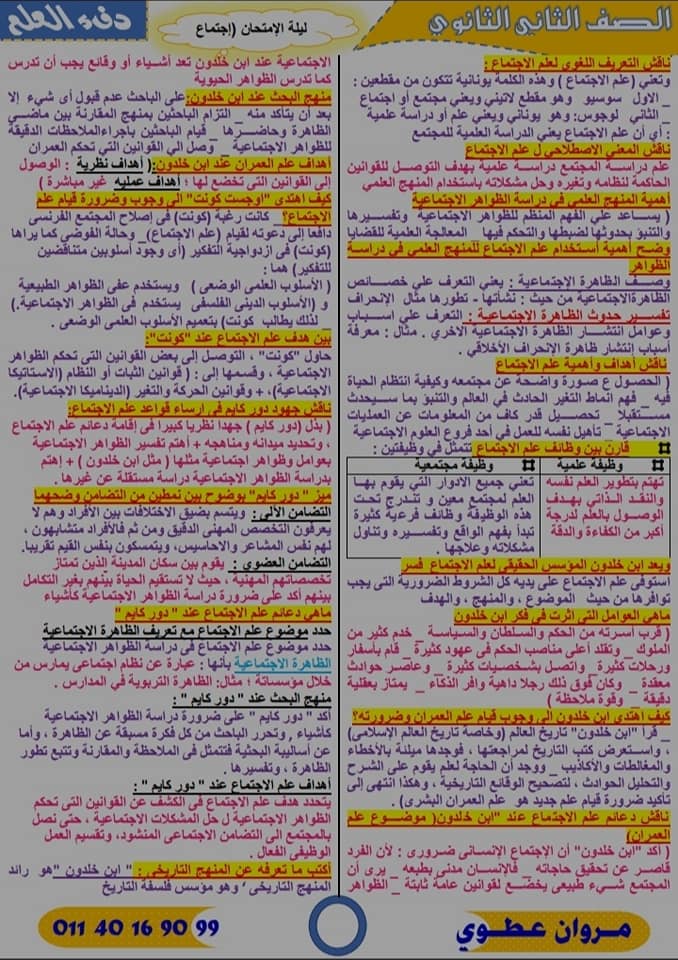 الصف الثاني الثانوي
ليلة الإمتحان (إجتماع
دفء العلم
ناقش التعريف اللغوي لعلم الاجتماع :
وتعني (علم الاجتماع ) وهذه الكلمة يونانية تتكون من مقطعين :
_ الاول سوسيو وهو مقطع لاتيني ويعني مجتمع أو اجتماع
_ الثاني لوجوس: وهو يوناني ويعني علم أو دراسة علمية
: أي أن علم الاجتماع يعني الدراسة العلمية للمجتمع
ناقش المعني الاصطلاحي ل علم الاجتماع
علم دراسة المجتمع دراسة علمية بهدف التوصل للقوانين
الحاكمة لنظامه وتغيره وحل مشكلاته باستخدام المنهج العلمي
أهمية المنهج العلمي في دراسة الظواهر الاجتماعية
( يساعد علي الفهم المنظم للظواهر الاجتماعية وتفسيرها
والتنبؤ بحدوثها لضبطها والتحكم فيها _ المعالجة العلمية للقضايا
وضح أهمية أستخدام علم الاجتماع للمنهج العلمي في دراسة
الظواهر
وصف الظاهرة الإجتماعية : يعني التعرف علي خصائص
الظاهرةالاجتماعية من حيث : نشأتها - تطورها مثال الإنحراف
تفسير حدوث الظاهرة الإجتماعية : التعرف علي اسباب
وعوامل انتشار الظاهرة الاجتماعية الاخري . مثال : معرفة
أسباب إنتشار ظاهرة الإنحراف الأخلاقي .
ناقش أهداف وأهمية علم الاجتماع
( الحصول ع صورة واضحة عن مجتمعه وكيفية انتظام الحياة
فيه _ فهم انماط التغير الحادث في العالم والتنبؤ بما سيحدث
مستقبلا _ تحصيل قدر كاف من المعلومات عن العمليات
الاجتماعية _ تأهيل نفسه للعمل في أحد فروع العلوم الإجتماعية
قارن بين وظائف علم الإجتماع تتمثل في وظيفتين :
وظيفة علمية
وظيفة مجتمعية
تهتم بتطوير العلم نفسه
والنقد الذاتي بهدف
الوصول بالعلم لدرجة
أكبر من الكفاءة والدقة
تعني جميع الادوار التي يقوم بها
العلم لمجتمع معين و تندرج تحت
هذه الوظيفة وظائف فرعية كثيرة
تبدأ بفهم الواقع وتفسيره وتناول
مشكلاته وعلاجها .
ويعد ابن خلدون المؤسس الحقيقي لعلم الاجتماع فسر
استوفى علم الاجتماع على يديه كل الشروط الضرورية التي يجب
توافرها من حيث الموضوع ، والمنهج ، والهدف
ماهي العوامل التي اثرت في فكر ابن خلدون
( قرب أسرته من الحكم والسلطان والسياسة _ خدم كثير من
الملوك _ وتقلد أعلي مناصب الحكم في عهود كثيرة _ قام بأسفار
ورحلات كثيرة _ واتصل بشخصيات كثيرة _ وعاصر حوادث
معقدة _ وكان فوق ذلك رجلا داهية وافر الذكاء _ يمتاز بعقلية
دقيقة _ وقوة ملاحظة )
كيف اهتدى ابن خلدون الى وجوب قيام علم العمران وضرورته؟
_ قرأ "ابن خلدون" تاريخ العالم (وخاصة تاريخ العالم الإسلامى)
، واستعرض كتب التاريخ لمراجعتها ، فوجدها مليئة بالأخطاء
والمغالطات والأكاذيب _ ووجد أن الحاجة لعلم يقوم على الشرح
والتحليل الحوادث ، لتصحيح الوقائع التاريخية ، وهكذا انتهى إلى
تأكيد ضرورة قيام علم جديد هو علم العمران البشرى) .
ناقش دعائم علم الاجتماع عند "ابن خلدون( موضوع علم
العمران)
( أكد "ابن خلدون" أن الإجتماع الإنسانى ضرورى : لأن الفرد
قاصر عن تحقيق حاجاته _ فالإنسان مدنى بطبعه _ يرى أن
المجتمع شيء طبيعي يخضع لقوانين عامة ثابتة _ الظواهر
الاجتماعية عند ابن خلدون تعد أشياء أو وقائع يجب أن تدرس
كما تدرس الظواهر الحيوية
منهج البحث عند ابن خلدون: على الباحث عدم قبول أى شيء إلا
بعد أن يتأكد منه _ التزام الباحثين بمنهج المقارنة بين ماضي
الظاهرة وحاضرها _ قيام الباحثين باجراءالملاحظات الدقيقة
للظواهر الاجتماعية _ وصل الي القوانين التي تحكم العمران
أهداف علم العمران عند ابن خلدون:( أهداف نظرية : الوصول
إلى القوانين التي تخضع لها ؛ أهداف عمليه غير مباشرة )
كيف اهتدى "اوجست كونت" الى وجوب وضرورة قيام علم
الاجتماع؟ _ كانت رغبة (كونت) فى إصلاح المجتمع الفرنسى
دافعا إلى دعوته لقيام (علم الاجتماع)_ وحالة الفوضي كما يراها
(كونت) فى ازدواجية التفكير (أى وجود أسلوبين متناقضين
للتفكير) هما :
( الأسلوب العلمى الوضعى ) ويستخدم على الظواهر الطبيعية
و (الأسلوب الدينى الفلسفى يستخدم فى الظواهر الاجتماعية.)
_ لذلك يطالب كونت) بتعميم الأسلوب العلمى الوضعى .
بين هدف علم الاجتماع عند "كونت":
حاول "كونت" ، التوصل إلى بعض القوانين التى تحكم الظواهر
الاجتماعية ، وقسمها إلى : ( قوانين الثبات أو النظام (الاستاتيكا
الاجتماعية)، + وقوانين الحركة والتغير (الديناميكا الاجتماعية).
ناقش جهود دور كايم فى ارساء قواعد علم الإجتماع:
( بذل (دور كايم ) جهدا نظريا كبيرا فى إقامة دعائم علم الاجتماع
، وتحديد ميدانه ومناهجه + أهتم تفسير الظواهر الاجتماعية
بعوامل وظواهر اجتماعية مثلها ( مثل ابن خلدون ) + إهتم
بدراسة الظواهر الاجتماعية دراسة مستقلة عن غيرها .
ميز " دور كايم" بوضوح بين نمطين من التضامن وضحهما
التضامن الألى : ويتسم بضيق الاختلافات بين الأفراد وهم لا
يعرفون التخصص المهنى الدقيق ومن ثم فالأفراد متشابهون ،
لهم نفس المشاعر والاحاسيس، ويتمسكون بنفس القيم تقريبا.
التضامن العضوى : يقوم بين سكان المدينة الذين تمتاز
تخصصاتهم المهنية ، حيث لا تستقيم الحياة بينهم بغير التكامل
بينهم أكد على ضرورة دراسة الظواهر الاجتماعية كأشياء
ماهى دعائم علم الاجتماع عند " دور كايم "
حدد موضوع علم الاجتماع مع تعريف الظاهرة الاجتماعية
حدد موضوع علم الاجتماع فى دراسة الظواهر الاجتماعية
الظاهرة الاجتماعية بأنها : عبارة عن نظام اجتماعى يمارس من
خلال مؤسساته ؛ مثال: الظاهرة التربوية في المدارس .
منهج البحث عند " دور كايم " :
أكد " دور كايم " على ضرورة دراسة الظواهر الاجتماعية
كأشياء ، وتحرر الباحث من كل فكرة مسبقة عن الظاهرة ، وأما
عن أساليبة البحثية فتتمثل فى الملاحظة والمقارنة وتتبع تطور
الظاهرة ، وتفسيرها .
أهداف علم الاجتماع عند " دور كايم " :
يتحدد هدف علم الاجتماع فى الكشف عن القوانين التى تحكم
الظواهر الاجتماعية ل حل المشكلات الاجتماعية ، حتى نصل
بالمجتمع الى التضامن الاجتماعى المنشود، وتقسيم العمل
الوظيفى الفعال .
أكتب ما تعرفه عن المنهج التاريخى : " ابن خلدون "هو رائد
المنهج التاريخى ؛ وهو مؤسس فلسفة التاريخ
مروان عطوي
011 40 16 90 99